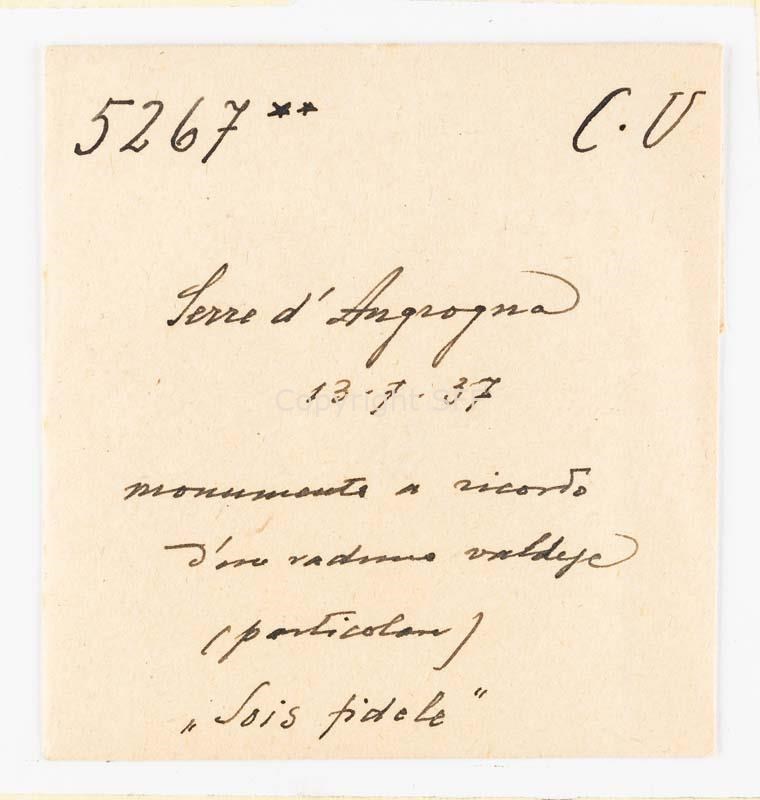 5267** C. V
Serre d'Angrogna
13.7.37
monumento a ricordo
d'un raduno valdese
(particolare)
„Sois fidele"